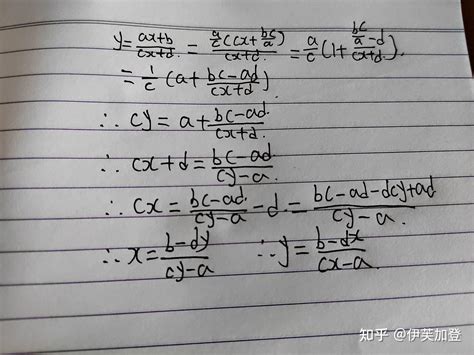 y=\frac{ax+b}{cx+d}=\frac{\frac{a}{c}(cx+\frac{bc}{a})}{cx+d}=\frac{a}{c}(1+\frac{\frac{bc}{a}-d}{cx+d}).
=\frac{1}{c}(a+\frac{bc-ad}{cx+d})
∴cy=a+\frac{bc-ad}{cx+d}
∴cx+d=\frac{bc-ad}{cy-a}
∴cx=\frac{bc-ad}{cy-a}-d=\frac{bc-ad-dcy+ad}{cy-a}
∴x=\frac{b-dy}{cy-a} ∴y=\frac{b-dx}{cx-a}.
知乎 @伊芙加登